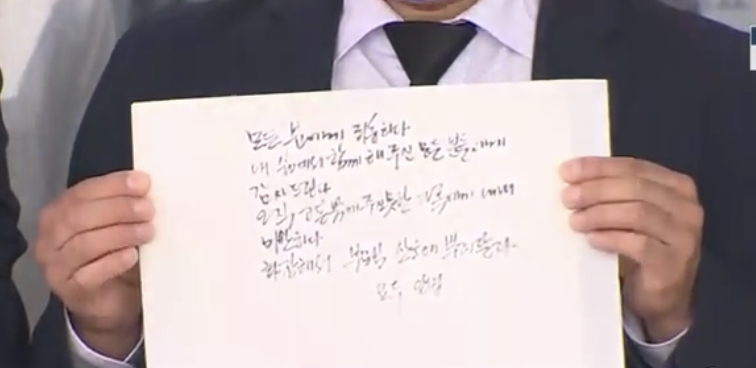 모든 분에게 죄송하다
내 삶에서 함께 해주신 모든 분들에게
감사드린다
오직, 고통밖에 주지 못한 가족에게 내내
미안하다
화장해서 부모님 산소에 뿌려달라
모두 안녕